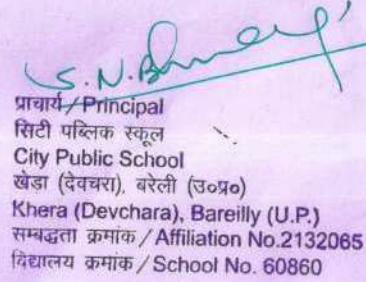 प्राचार्य/Principal
सिटी पब्लिक स्कूल
City Public School
खेडा (देवचरा), बरेली (उ०प्र०)
Khera (Devchara), Bareilly (U.P.)
सम्बद्धता क्रमांक/Affiliation No.2132065
विद्यालय क्रमांक/School No. 60860